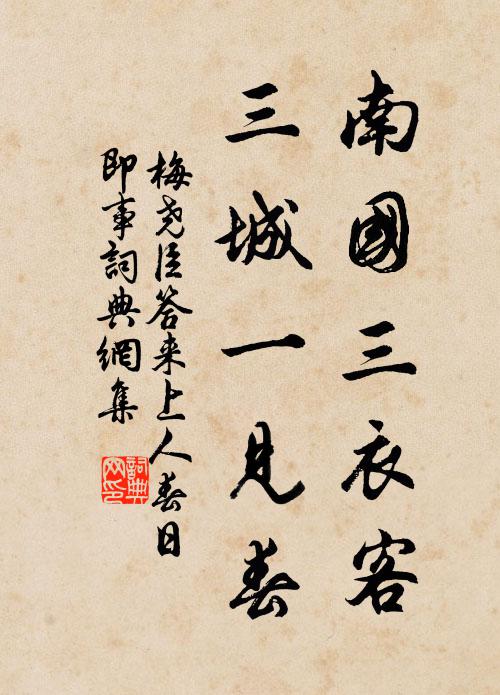 南國三衣客
三城一見春
梅尧臣答来上人春日
即事詞典網集
詞典
网印